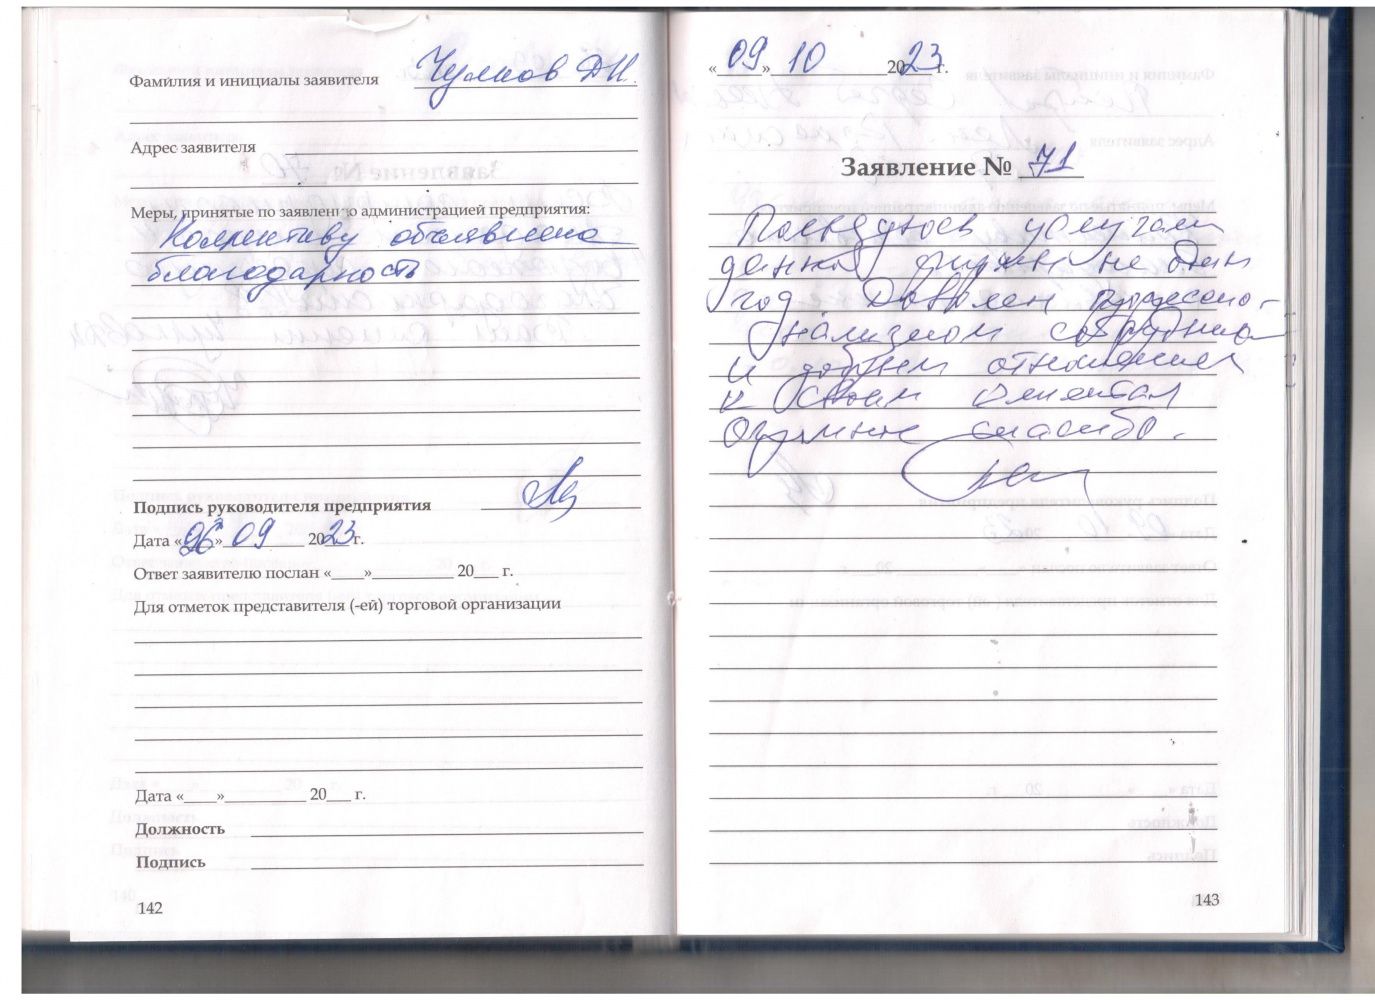 Фамилия и инициалы заявителя Чулков Д.Н.
Адрес заявителя
Меры, принятые по заявлению администрацией предприятия:
Коллективу объявлена
благодарность
Подпись руководителя предприятия
Дата «26» 09 2023 г.
Ответ заявителю послан «___»__________ 20___ г.
Для отметок представителя (-ей) торговой организации
Дата «___»__________ 20___ г.
Должность
Подпись
142
«09» 10 2023 г.
Заявление № 71
Пользуюсь услугами
данной фирмы не один
год. Доволен професио-
нализмом сотрудников
и добрым отношением
к своим клиентам
Огромное спасибо.
143